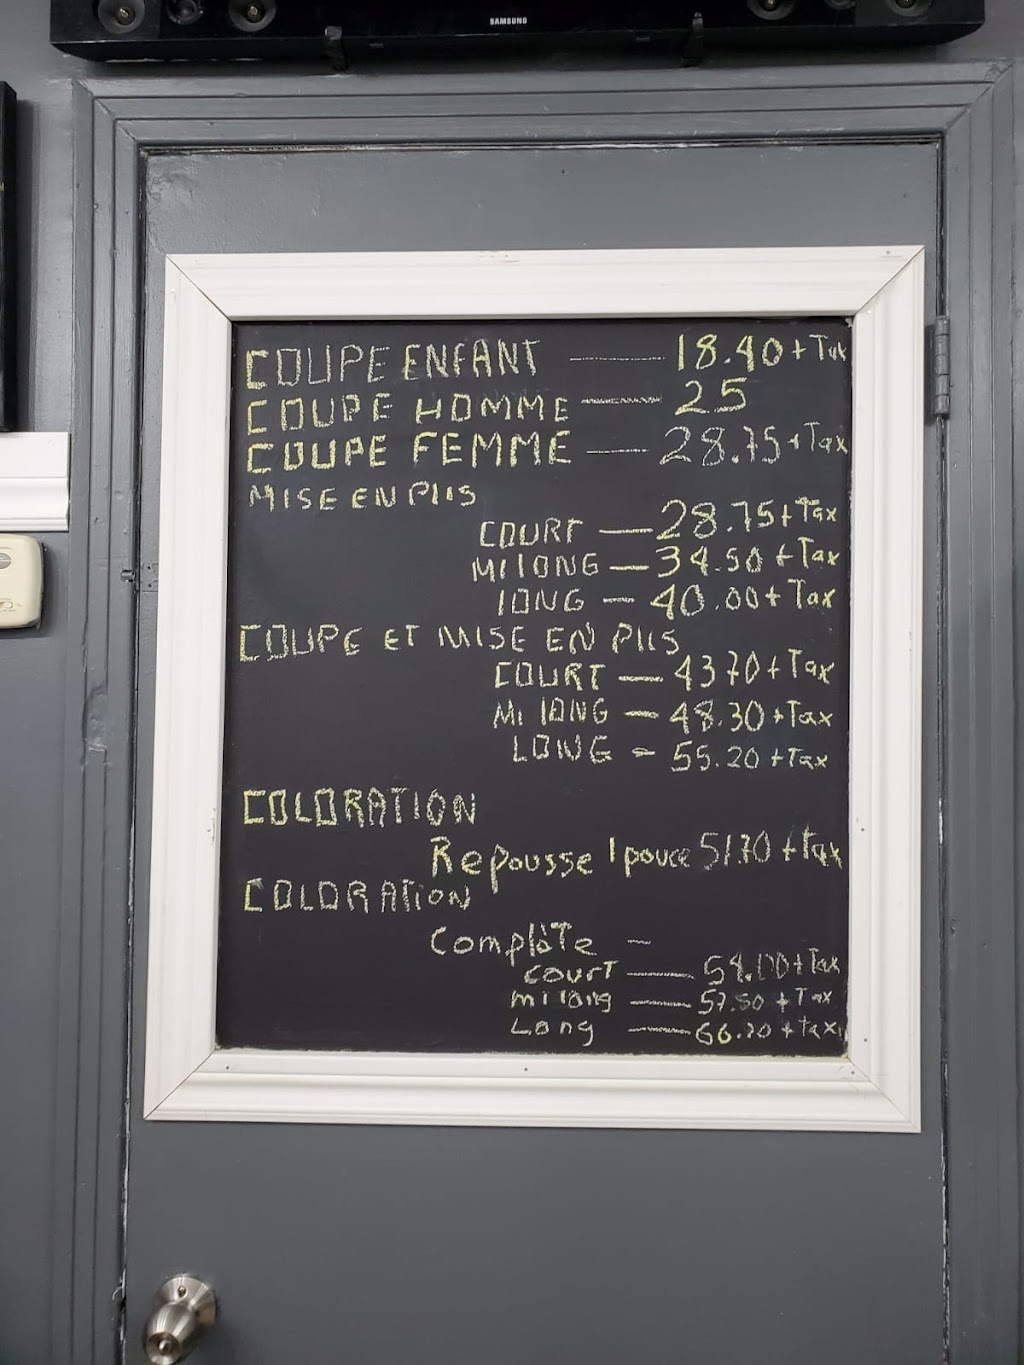 SAMSUNG
COUPE ENFANT — 18.40 + Tax
COUPE HOMME — 25
COUPE FEMME — 28.75 + Tax
MISE EN PlIS
COURT — 28.75 + Tax
MI lONG — 34.50 + Tax
lONG — 40.00 + Tax
COUPE ET MISE EN PlIS
COURT — 43 70 + Tax
MI lONG — 48.30 + Tax
LONG - 55.20 + Tax
COLORATION
Repousse 1 pouce 51.70 + Tax
COLORATioN
Complète —
court — 54.00 + Tax
mi long — 57.50 + Tax
Long — 66.70 + tax